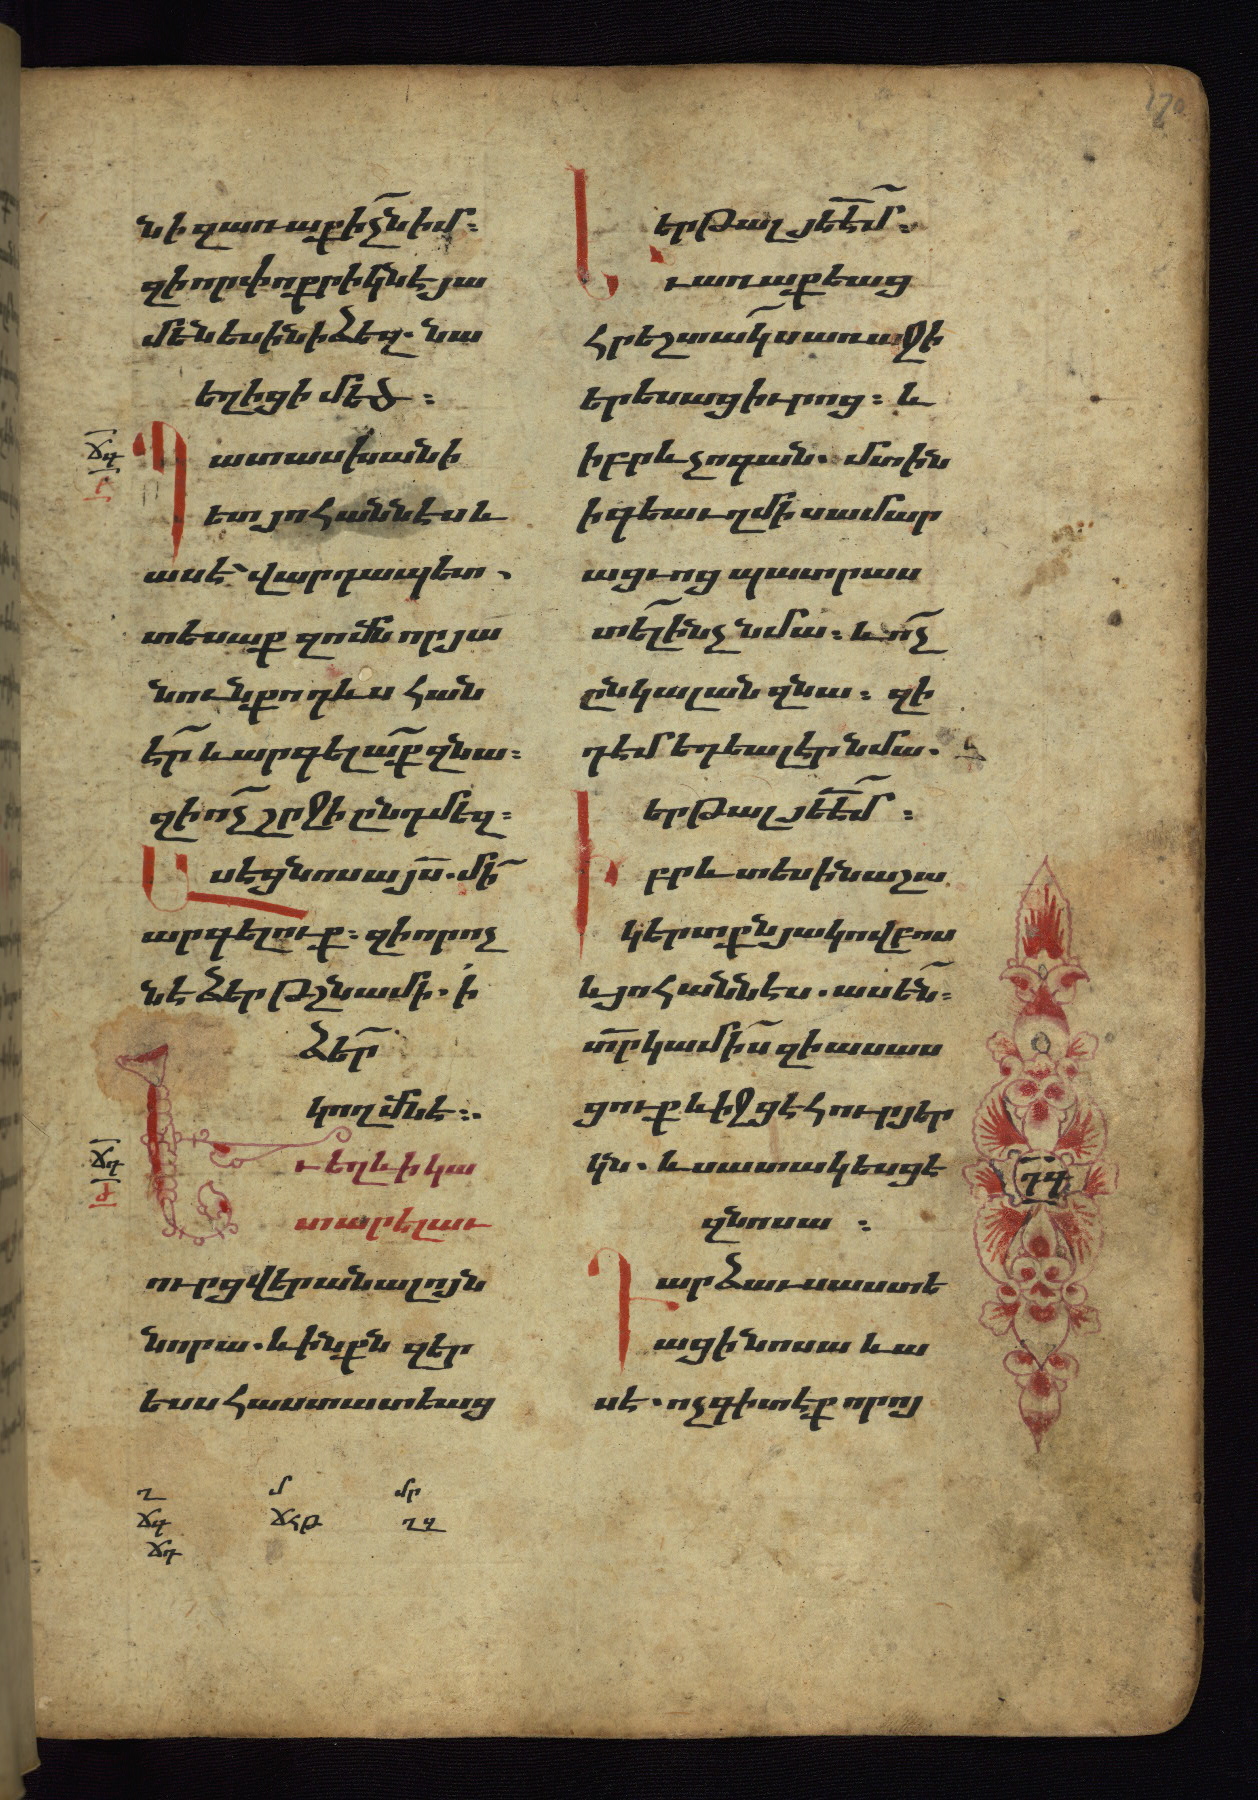 նի զառաքիչն իմ։
զի որ փոքրիկն է յա
մենեսինի ձեզ. նա
եղիցի մեծ։
ՃԳ
Պատասխանի
ետ յոհաննէս և
ասէ՝ վարդապետ.
տեսաք զոմն որ յա
նուն քո դևս հան
էր և արգելաք զնա։
զի ոչ շրջի ընդ մեզ։
Ասէ ցնոսա յս. մի
արգելուք։ զի որ ոչ
նէ ձեր թշնամի. ի
ձեր
կողմն է։.
ՃԴ
Ւ եղև ի կա
տարել աւ
ուրց վերանալոյն
նորա. և ինքն զեր
եսս հաստատեաց
երթալ յեեմ։
Եւ առաքեաց
հրեշտակս առաջի
երեսաց իւրոց։ և
իբրև չոգան. մտին
ի գեաւղ մի սամար
ացւոց պատրաս
տել ինչ նմա։ և ոչ
ընկալան զնա։ զի
դէմ եդեալ էր նմա.
երթալ յեեմ։
Իբրև տեսին աշա
կերտքն յակովբոս
և յոհաննէս. ասեն։
տր կամիս զի ասաս
ցուք և իջցէ հուր յեր
կն. և սատակեսցէ
զնոսա։
ԴԳ
Դարձաւ սաստե
աց ի նոսա և ա
սէ. ոչ գիտէք որոյ
Ղ Մ ՄՐ
ՃԳ ՃՀԹ ՂԳ
ՃԴ